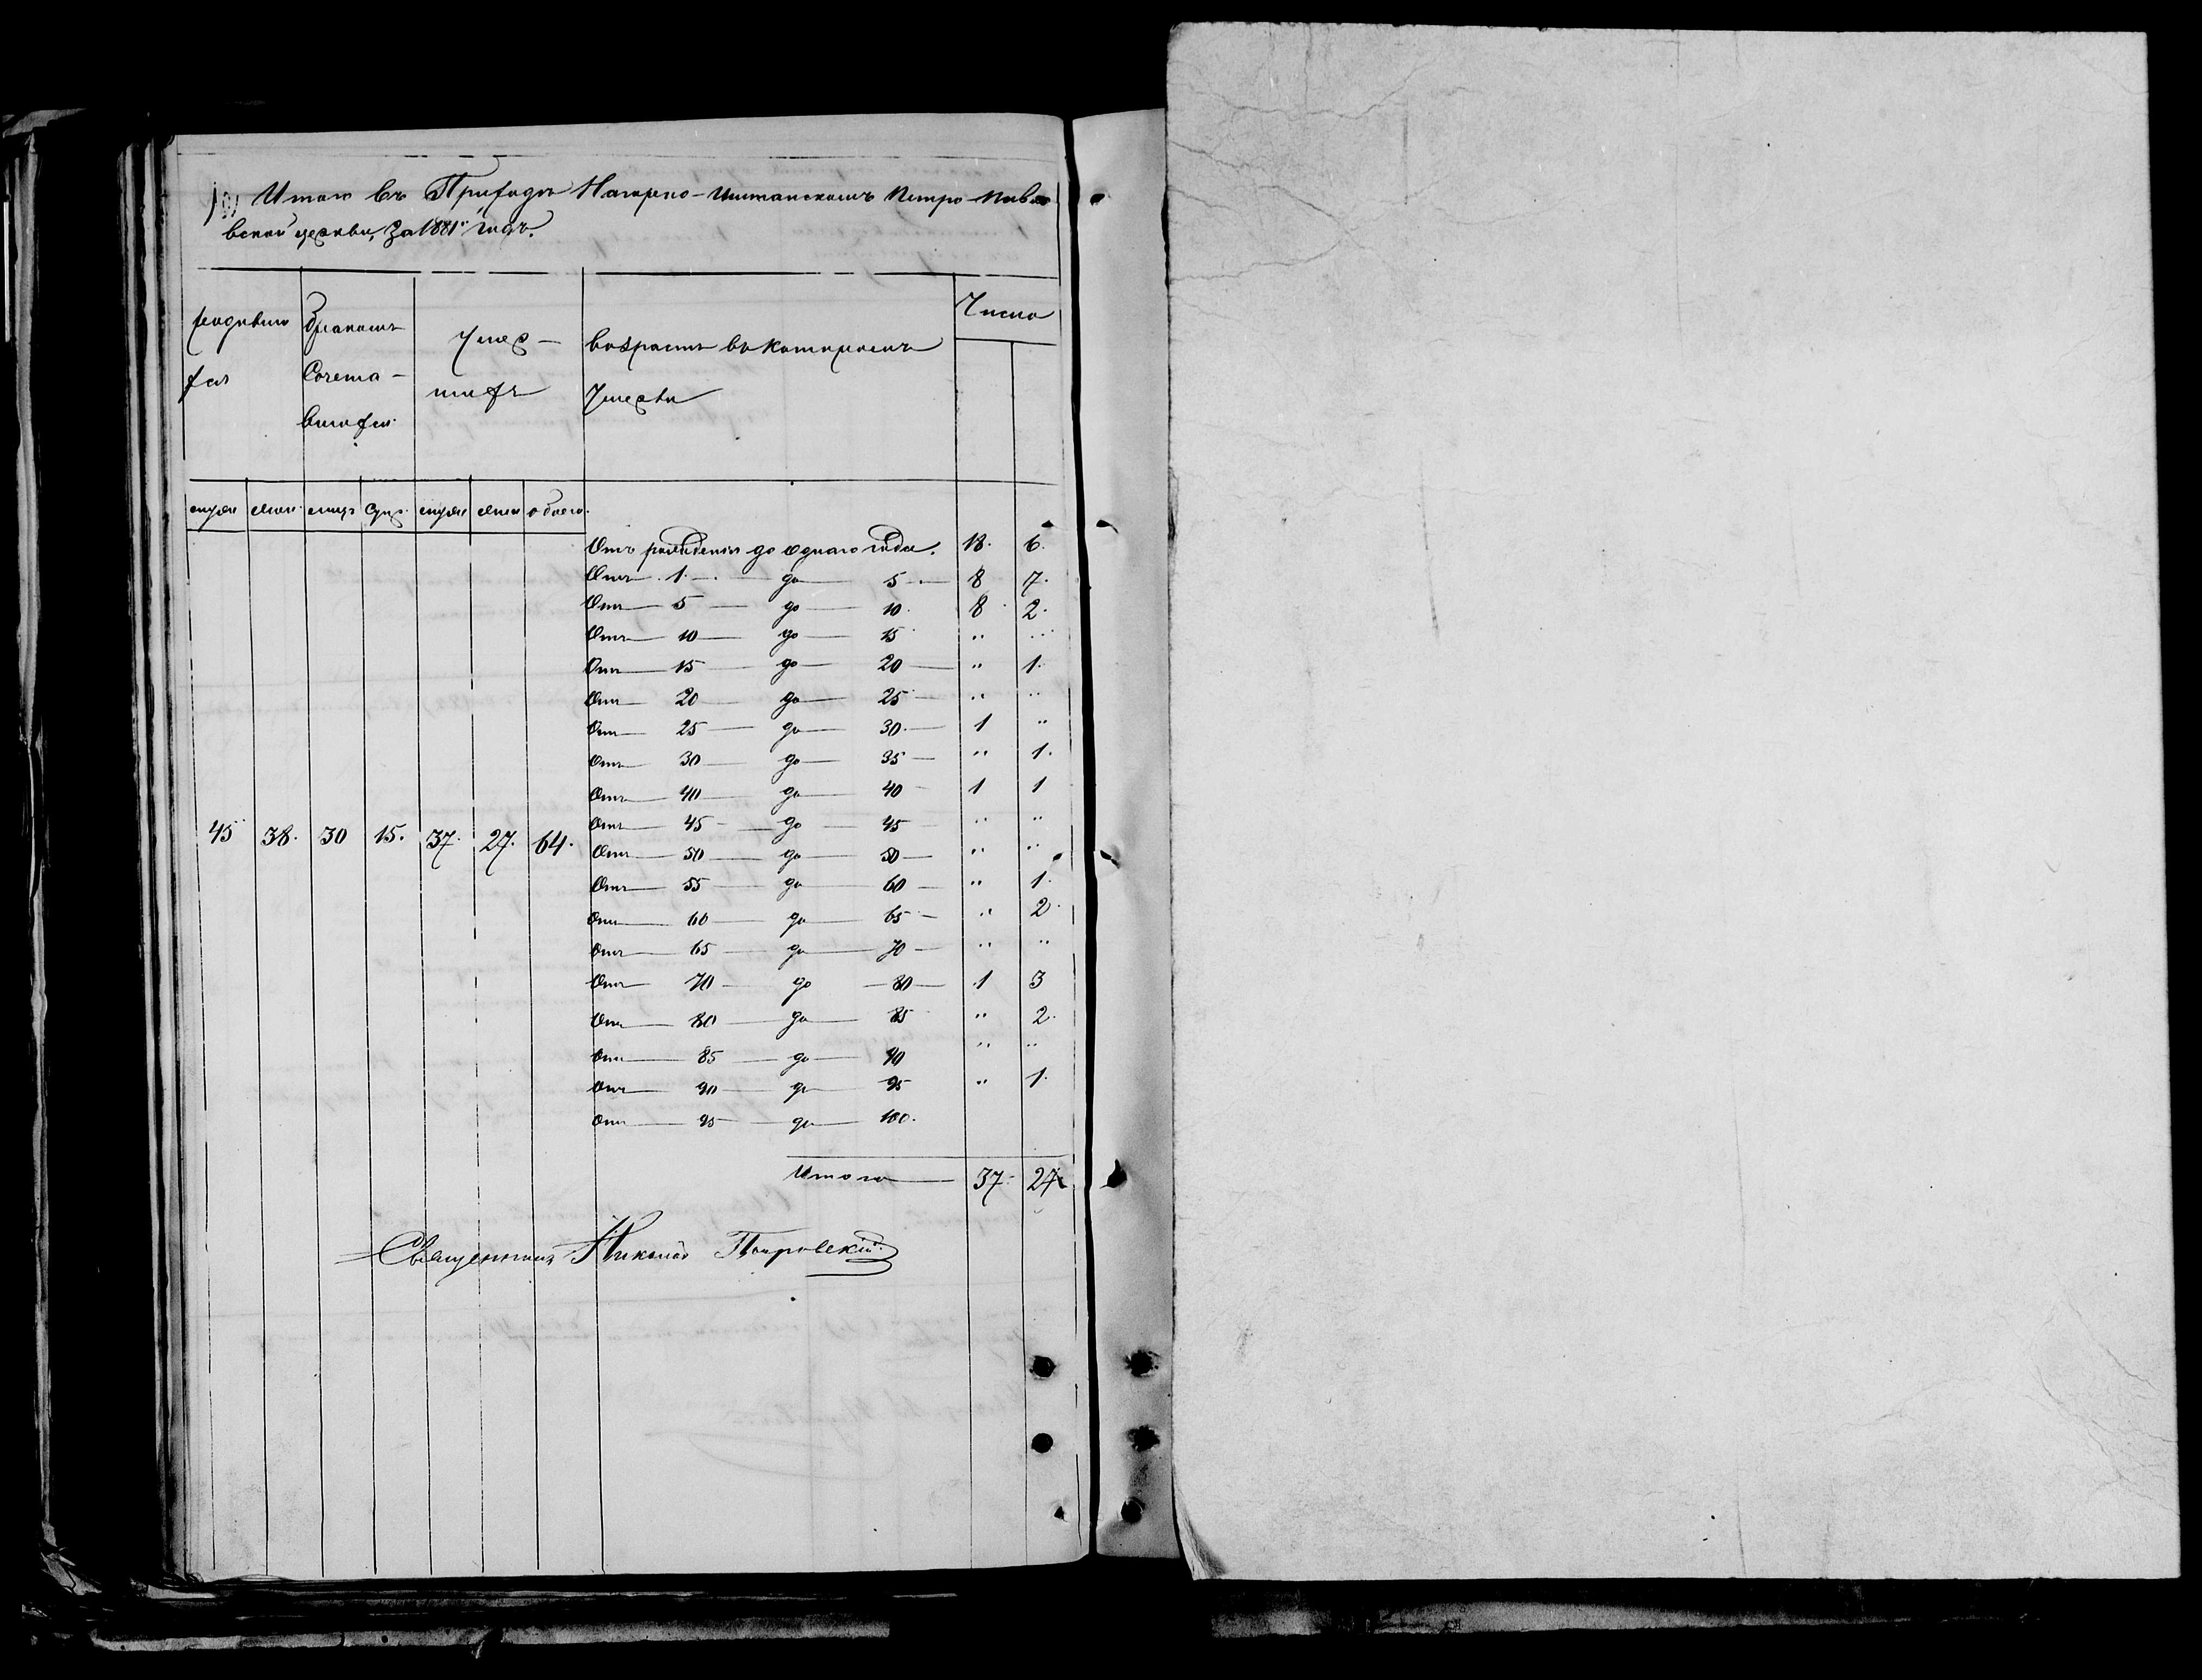 Итого въ Приходѣ Нагорно-Иштанскомъ Петро-Павло
вской церкви, За 1881й годъ.
родивши
хся
бракомъ
Сочета-
вшихся
Умер-
шихъ
возрастъ въ которомъ
Умерли
Число
муж. жен. муж. Супр. муж. жен. обоего.
45 38. 30 15. 37. 27. 64.
Отъ рожденія до однаго года. 18. 6.
Отъ 1 до 5 8 7.
Отъ 5 до 10 8 2.
Отъ 10 до 15 " "
Отъ 15 до 20 " 1.
Отъ 20 до 25 " "
Отъ 25 до 30 1 "
Отъ 30 до 35 " 1.
Отъ 40 до 40 1 1
Отъ 45 до 45 " "
Отъ 50 до 50 " "
Отъ 55 до 60 " 1.
Отъ 60 до 65 " 2
Отъ 65 до 70 " "
Отъ 70 до 80 1 3
Отъ 80 до 85 " 2.
Отъ 85 до 90 " "
Отъ 90 до 95 " 1.
Отъ 95 до 100.
Итого 37. 27
Священникъ Николай Покровскій